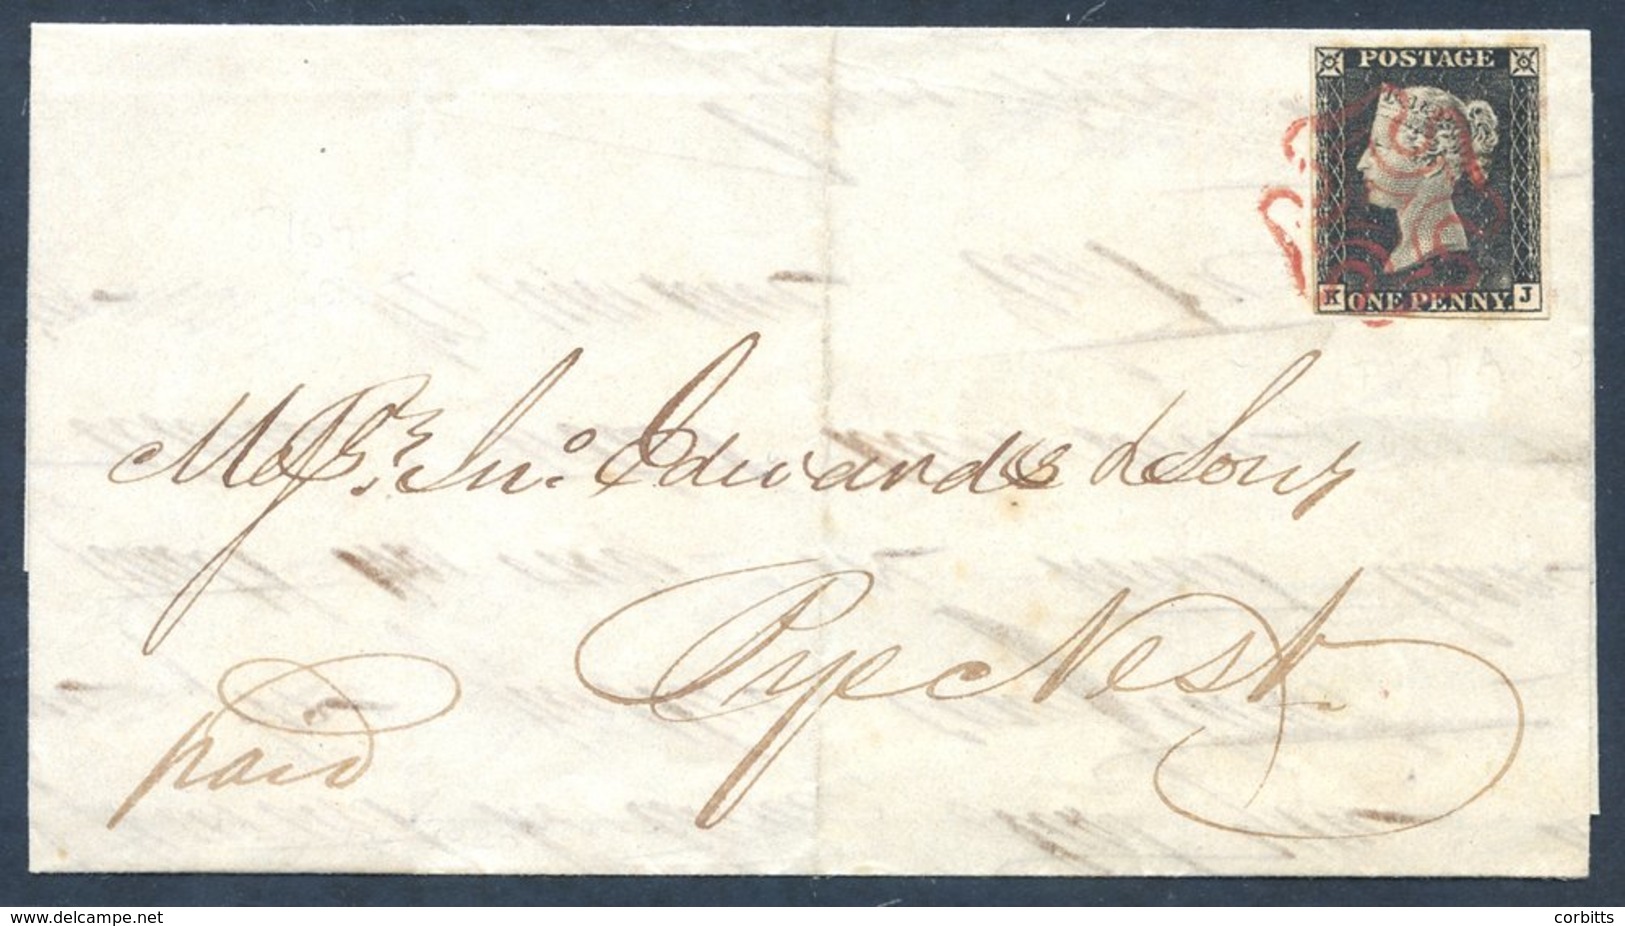 POSTAGE
K ONE PENNY. J
Messrs Jno. Edwards & Sons
Pye Nest
paid
www.delcampe.net
corbitts